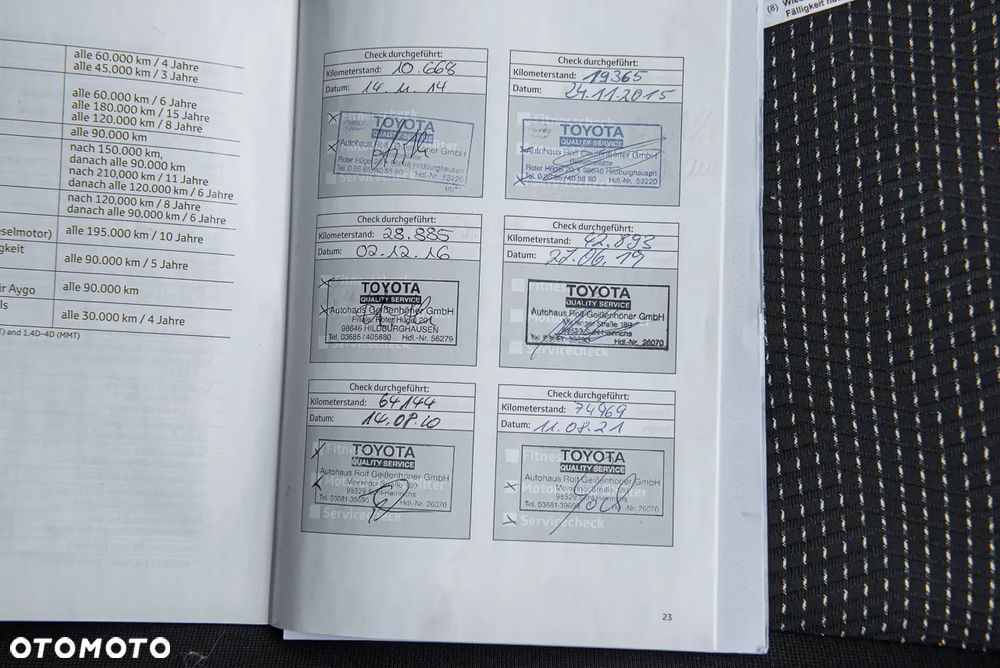 (8)
Fälligkeit
alle 60.000 km / 4 Jahre
alle 45.000 km / 3 Jahre
alle 60.000 km / 6 Jahre
alle 180.000 km / 15 Jahre
alle 120.000 km / 8 Jahre
alle 90.000 km
nach 150.000 km,
danach alle 90.000 km
nach 210,000 km / 11 Jahre
danach alle 120.000 km / 6 Jahre
nach 120,000 km / 8 Jahre
danach alle 90.000 km / 6 Jahre
selmotor) alle 195.000 km / 10 Jahre
gkeit
alle 90.000 km / 5 Jahre
ir Aygo alle 90.000 km
ls
alle 30.000 km / 4 Jahre
) and 1.4D-4D (MMT)
Check durchgeführt:
Kilometerstand: 10.668
Datum: 14.11.14
TOYOTA
QUALITY SERVICE
Autohaus Rolf GmbH
Roter Hügel Hildburghausen
Hdl.-Nr. 53220
Check durchgeführt:
Kilometerstand: 19365
Datum: 24.11.2015
TOYOTA
QUALITY SERVICE
Autohaus Rolf Geißenhöner GmbH
Roter Hügel 20 98646 Hildburghausen
Hdl.-Nr. 53220
Check durchgeführt:
Kilometerstand: 28.885
Datum: 02.12.16
TOYOTA
QUALITY SERVICE
Autohaus Rolf Geißenhöner GmbH
Filiale: Roter Hügel 20
98646 HILDBURGHAUSEN
Tel. 03685/405880 Hdl.-Nr. 56279
Check durchgeführt:
Kilometerstand: 42.893
Datum: 27.06.19
TOYOTA
QUALITY SERVICE
Autohaus Rolf Geißenhöner GmbH
Meininger Straße 189
Hdl.-Nr. 26070
Servicecheck
Check durchgeführt:
Kilometerstand: 64144
Datum:
TOYOTA
QUALITY SERVICE
Autohaus Rolf Geißenhöner GmbH
Meininger Straße 189
Tel. 03681-39690 Hdl.-Nr. 26070
Servicecheck
Check durchgeführt:
Kilometerstand: 74969
Datum: 11.08.21
TOYOTA
QUALITY SERVICE
Autohaus Rolf Geißenhöner GmbH
Meininger Straße 189
Tel. 03681-39690 Hdl.-Nr. 26070
Servicecheck
23
OTOMOTO